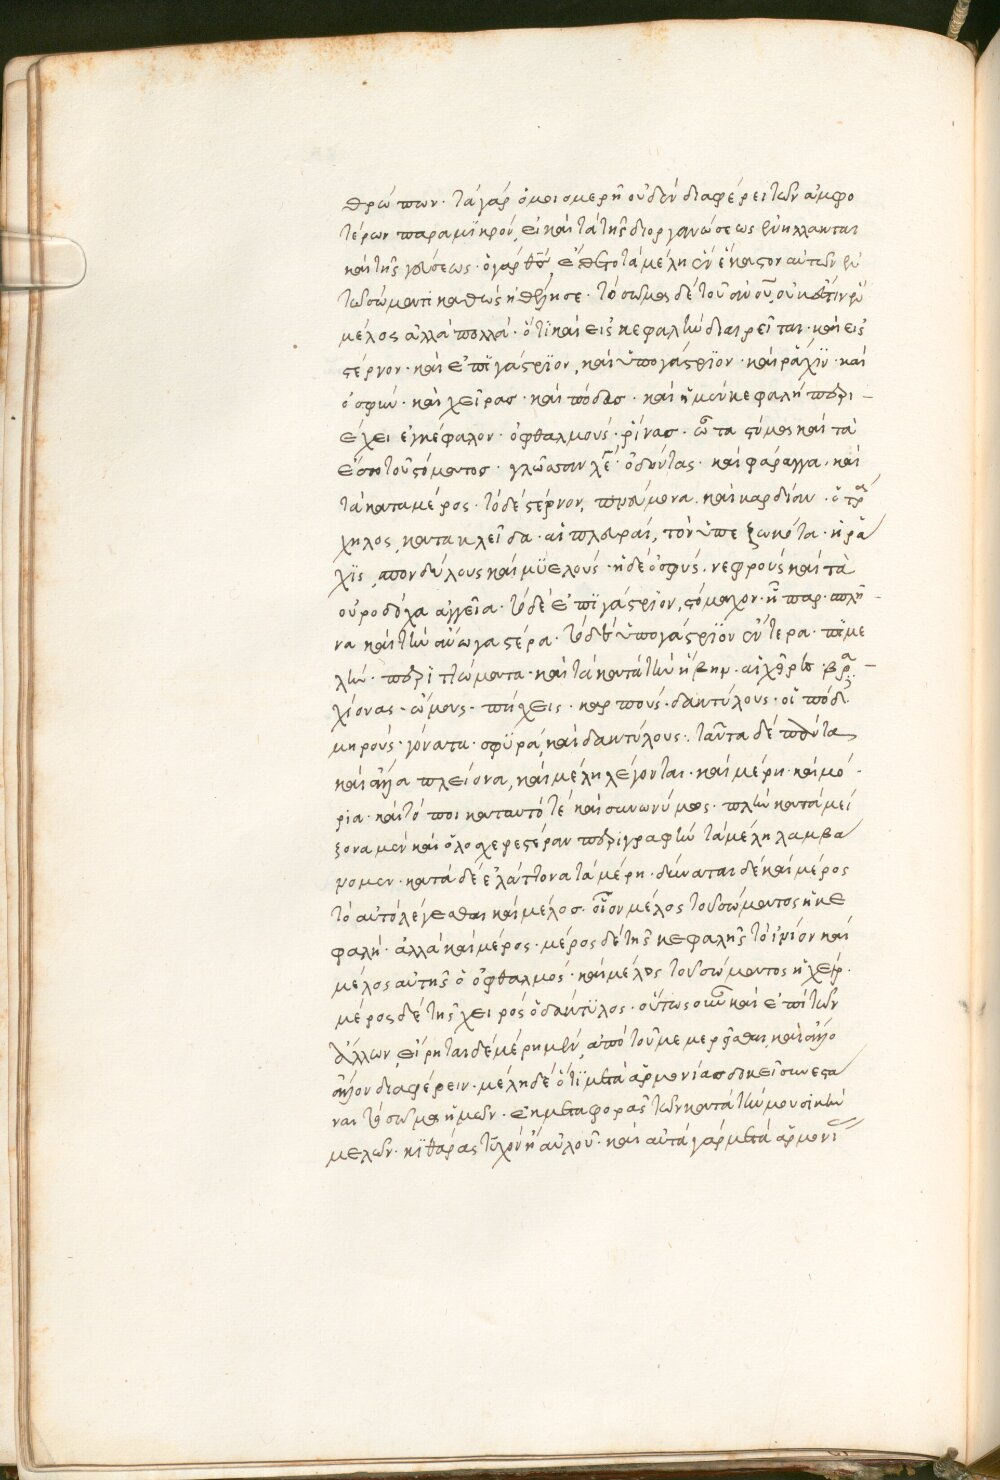 θρώπων· τὰ γὰρ ὁμοιομερῆ οὐδὲν διαφέρει τῶν ἀμφο
τέρων παραμικρόν, εἰ καὶ τὰ τῆς διοργανώσεως ἐνήλλακται
καὶ τῆς φύσεως· ὁ γὰρ θς̅, ἔθετο τὰ μέλη ἓν ἕκαστον αὐτῶν ἐν
τῶ σώματι καθὼς ἠθέλησε· τὸ σῶμα δὲ τοῦ ἀνου, οὐκ ἔστιν ἓν
μέλος ἀλλὰ πολλά· ὅτι καὶ εἰς κεφαλὴν διαιρεῖται· καὶ εἰς
στέρνον· καὶ ἐπιγάστριον, καὶ ὑπογάστριον· καὶ ράχιν· καὶ
ὀσφύν· καὶ χεῖρας· καὶ πόδας· καὶ ἡ μὲν κεφαλὴ περι–
έχει ἐγκέφαλον· ὀφθαλμούς· ρίνας· ὦτα στόμα καὶ τὰ
ἔσω τοῦ στόματος· γλῶσσαν λέγω ὀδόντας· καὶ φάραγγα· καὶ
τὰ καταμέρος· τὸ δὲ στέρνον, πνεύμονα· καὶ καρδίαν· ὁ τρά
χηλος, κατακλεῖδα· αἱ πλευραὶ, τὸν ὑπεζωκότα· ἡ ρά
χις, σπονδύλους καὶ μυελούς· ἡ δὲ ὀσφύς· νεφροὺς καὶ τὰ
οὐροδόχα ἀγγεῖα· τὸ δὲ ἐπιγάστριον, στόμαχον· ἧπαρ· σπλῆ–
να καὶ τὴν ἄνω γαστέρα· τὸ δὲ ὑπογάστριον ἔντερα· πιμε
λήν· περιττώματα· καὶ τὰ κατὰ τὴν ἥβην· αἱ χεῖρες· βρα–
χίονας· ὤμους· πήχεις· καρπούς· δακτύλους· οἱ πόδες
μηρούς· γόνατα· σφυρά, καὶ δακτύλους· ταῦτα δὲ πάντα
καὶ ἄλλα πλείονα, καὶ μέλη λέγονται· καὶ μέρη· καὶ μό–
ρια· καὶ τόποι κατ αυτό τε καὶ συνωνύμως· πλὴν κατὰ μεί
ξονα μὲν καὶ ὁλοσχερεστέραν περιγραφὴν τὰ μέλη λαμβά
νομεν· κατὰ δὲ ἐλάττονα τὰ μέρη· δύναται δὲ καὶ μέρος
τὸ αὐτὸ λέγεσθαι καὶ μέλος· οἷον μέλος τοῦ σώματος ἡ κε
φαλή· ἀλλὰ καὶ μέρος· μέρος δὲ τῆς κεφαλῆς τὸ ἰνίον καὶ
μέλος αὐτῆς ὁ ὀφθαλμός· καὶ μέλος τοῦ σώματος ἡ χείρ·
μέρος δὲ τῆς χειρὸς ὁ δάκτυλος· οὕτως οὖν καὶ ἐπὶ τῶν
ἄλλων, εἴρηται δὲ μέρη μὲν, ἀπὸ τοῦ μεμερίσθαι, καὶ ἄλλο
ἄλλου διαφέρειν· μέλη δὲ ὅτι μετὰ ἁρμονίας δοκεῖ συνεστά
ναι τὸ σῶμα ἡμῶν· ἐκ μεταφορᾶς τῶν κατὰ τὴν μουσικὴν
μελῶν· κιθάρας τυχὸν ἢ αὐλοῦ· καὶ αὐτὰ γὰρ μετὰ ἁρμονί